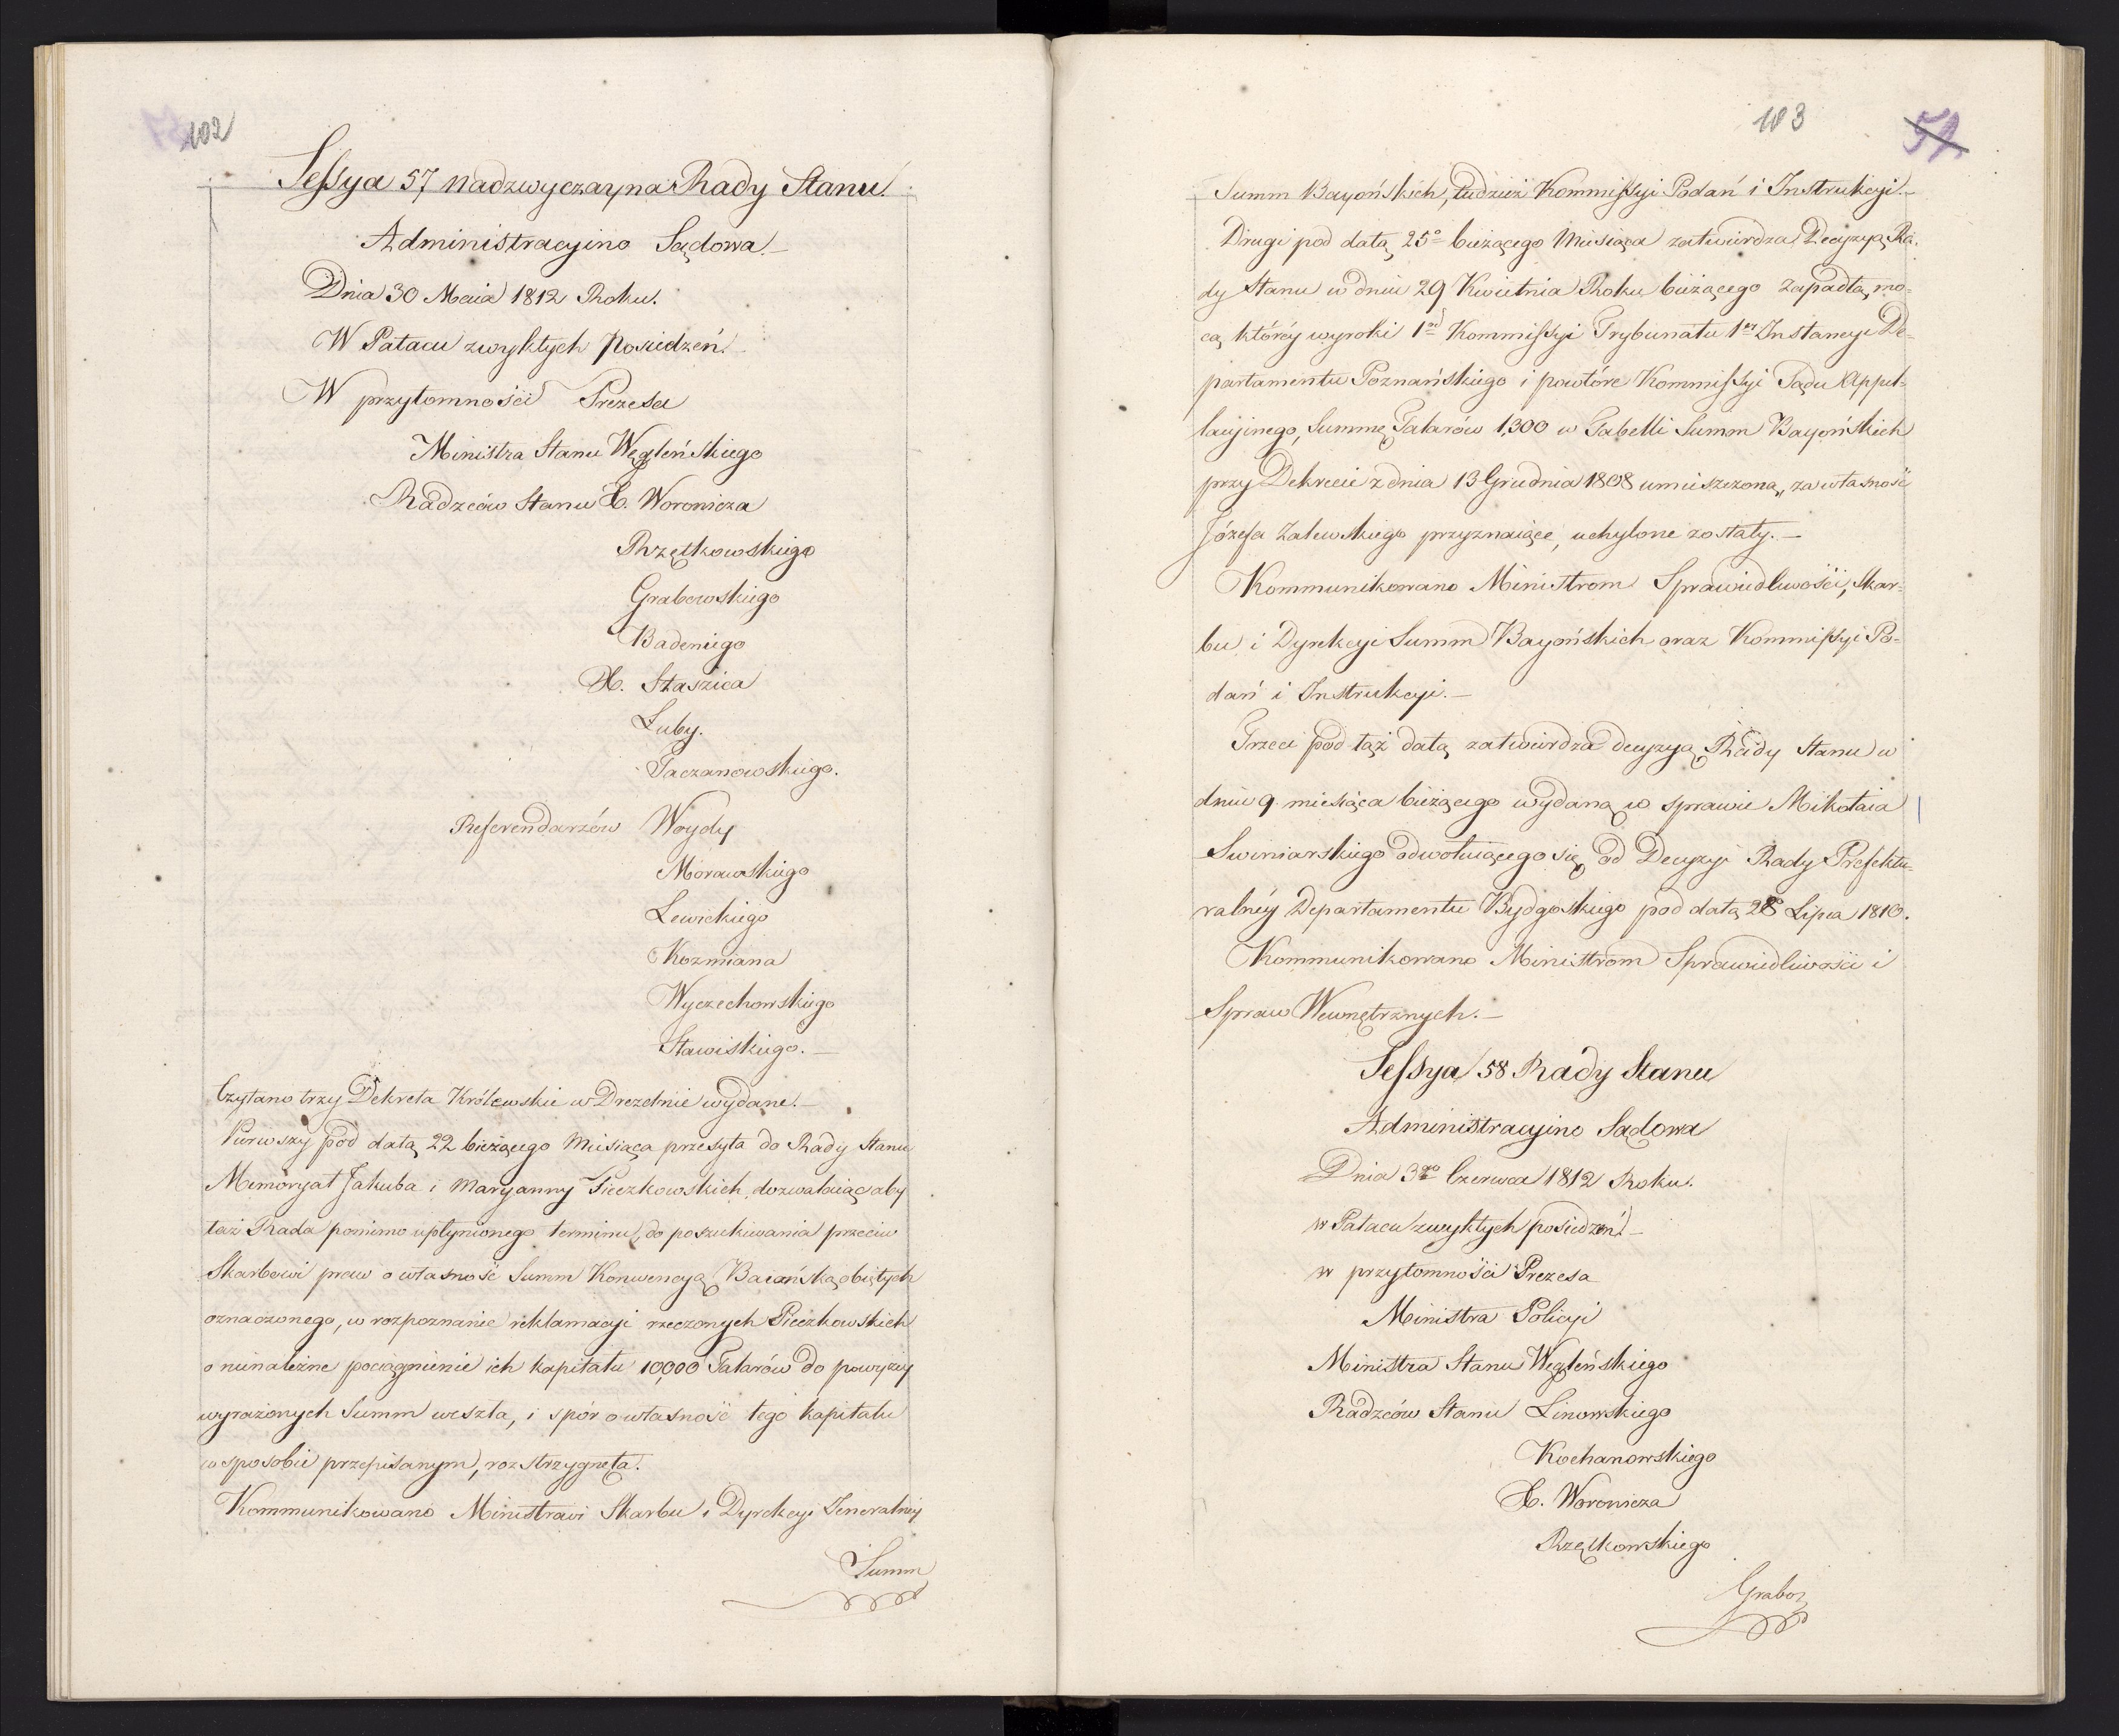 102
Sessya 57 Nadzwyczayna Rady Stanu.
Administracyino Sądowa.–
Dnia 30 Maia 1812 Roku.
W Pałacu zwykłych Posiedzeń.
W przytomności Prezesa
Ministra Stanu Węgleńskiego
Radzców Stanu X. Woronicza
Rzętkowskiego
Grabowskiego
Badeniego
X. Staszica
Łuby.
Taczanowskiego.
Referendarzów Woydy
Morawskiego
Lewickiego
Kozmiana
Wyczechowskiego
Stawiskiego.–
Czytano trzy Dekreta Królewskie w Dreźdnie wydane.–
Pierwszy pod datą 22 bieżącego Miesiąca przesyła do Rady Stanu
Memoryał Jakuba i Maryanny Pieczkowskich, dozwalaiąc aby
taż Rada pomimo upłynionego terminu, do poszukiwania przeciw
Skarbowi praw o własność Summ Konwencyą Baiońską obiętych
oznaczonego, w rozpoznanie reklamacyi rzeczonych Pieczkowskich
o nienależne pociągnienie ich kapitału 10,000 Talarów do powyżey
wyrażonych Summ weszła, i spór o własność tego kapitału
w sposobie przepisanym, rozstrzygnęła.
Kommunikowano Ministrowi Skarbu i Dyrekcyi Jeneralney
Summ
103
51.
Summ Bayońskich, tudzież Kommissyi Podań i Instrukcyi.–
Drugi pod datą 25o bieżącego Miesiąca zatwierdza Decyzyą Ra-
dy Stanu w dniu 29 Kwietnia Roku bieżącego zapadłą, mo-
cą którey wyroki 1ne Kommissyi Trybunału 1ey Instancyi De-
partamentu Poznańskiego i powtóre Kommissyi Sądu Appel-
lacyinego, Summę Talarów 1,300 w Tabelli Summ Bayońskich
przy Dekrecie z dnia 13 Grudnia 1808 umieszczoną, za własność
Józefa Zalewskiego przyznaiące, uchylone zostały.–
Kommunikowano Ministrom Sprawiedliwości, Skar-
bu i Dyrekcyi Summ Bayońskich oraz Kommissyi Po-
dań i Instrukcyi.–
Trzeci pod tąż datą zatwierdza decyzyą Rady Stanu w
dniu 9 miesiąca bieżącego wydaną w sprawie Mikołaia
Swiniarskiego odwołuiącego się od Decyzyi Rady Prefektu-
ralnéy Departamentu Bydgoskiego pod datą 28 Lipca 1810.
Kommunikowano Ministrom Sprawiedliwości i
Spraw Wewnętrznych.–
Sessya 58 Rady Stanu
Administracyino Sądowa
Dnia 3go Czerwca 1812 Roku.
w Pałacu zwykłych posiedzeń.–
w przytomności Prezesa
Ministra Policyi
Ministra Stanu Węgleńskiego
Radzców Stanu Linowskiego
Kochanowskiego
X. Woronicza
Rzętkowskiego
Grabow